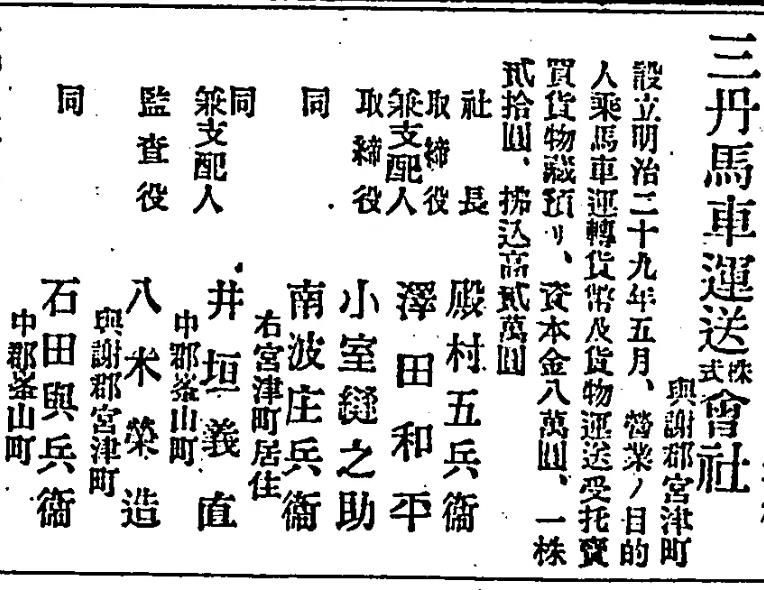 三丹馬車運送株式會社
與謝郡宮津町
設立明治二十九年五月、營業ノ目的
人乘馬車運轉貨幣及貨物運送受托賣
買貨物藏預リ、資本金八萬圓、一株
貳拾圓、拂込高貳萬圓
社長 殿村五兵衞
取締役兼支配人 澤田和平
取締役 小室縫之助
同 南波庄兵衞
右宮津町居住
同兼支配人 井垣義直
中郡峯山町
監査役 八木榮造
與謝郡宮津町
同 石田與兵衞
中郡峯山町